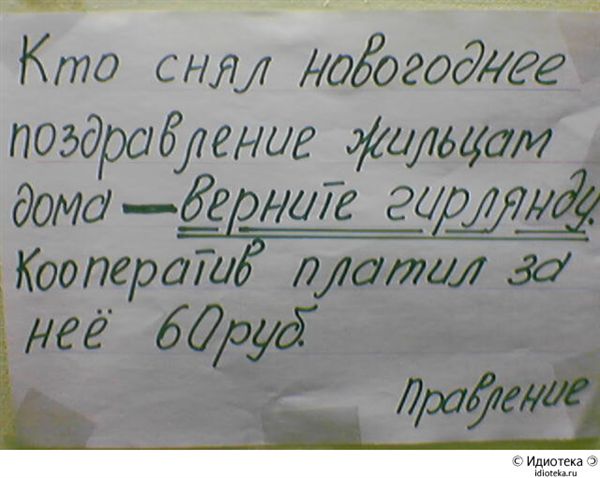 Кто снял новогоднее
поздравление жильцам
дома — верните гирлянду.
Кооператив платил за
неё 60руб.
Правление
© Идиотека
idioteka.ru